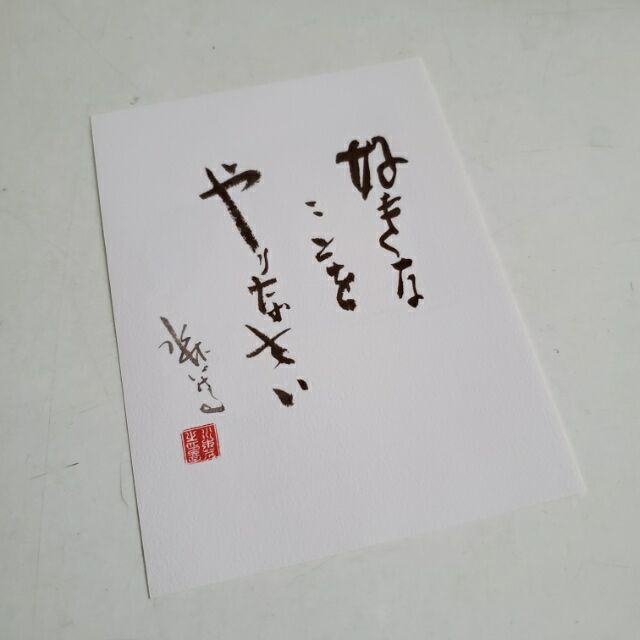 好きな
ことを
やりなさい